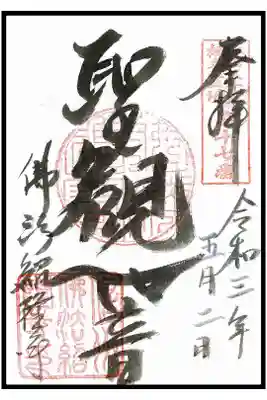 奉拝
令和三年
五月二日
聖観世音
佛法紹隆寺